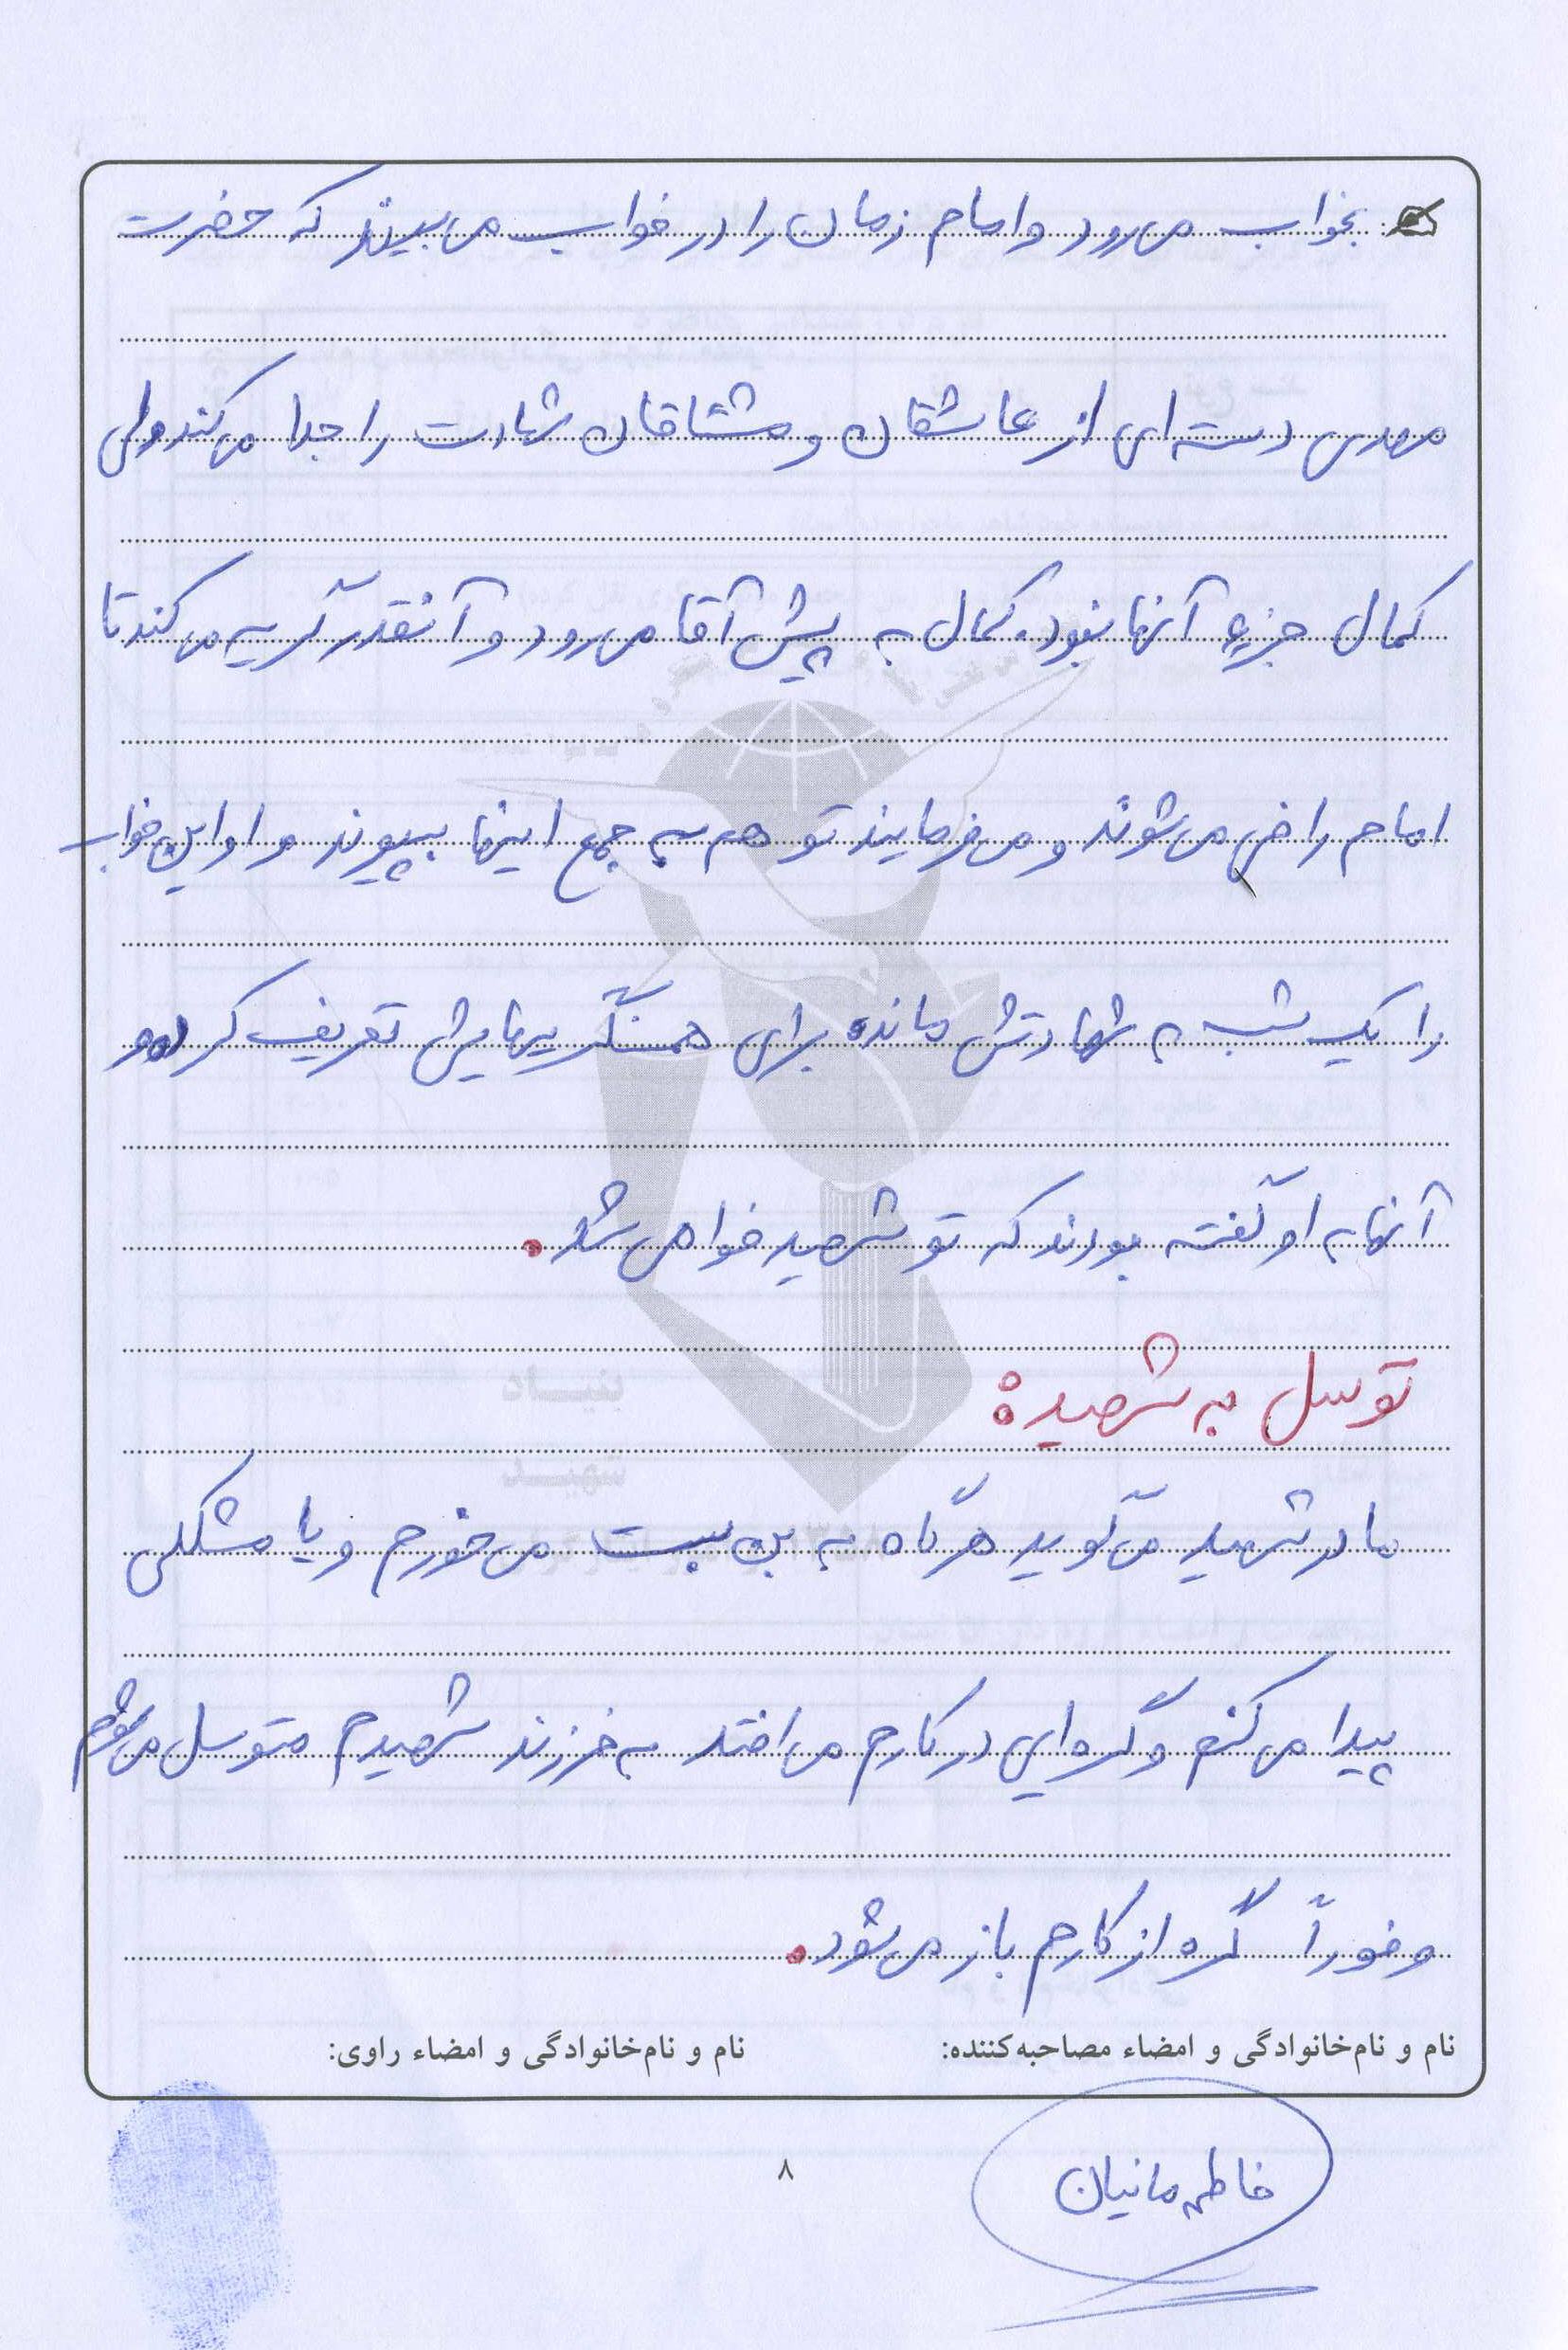 بخواب می‌رود و امام زمان را در خواب می‌بیند که حضرت
مهدی دسته‌ای از عاشقان و مشتاقان شهادت را جدا می‌کند ولی
کمال جزء آنها نبود. کمال به پیش آقا می‌رود و آنقدر گریه می‌کند تا
امام راضی می‌شوند و می‌فرمایند تو هم به جمع اینها بپیوند و او این خواب
را یک شب به شهادتش مانده برای همسنگریهایش تعریف کرده و
آنها به او گفته بودند که تو شهید خواهی شد.
توسل به شهید:
مادر شهید می‌گوید هرگاه به بن بست می‌خورم و یا مشکلی
پیدا می‌کنم و گره‌ای در کارم می‌افتد به فرزند شهیدم متوسل می‌شوم
و فوراً گره از کارم باز می‌شود.
نام و نام‌خانوادگی و امضاء مصاحبه‌کننده: نام و نام‌خانوادگی و امضاء راوی:
فاطمه مانیان
۸